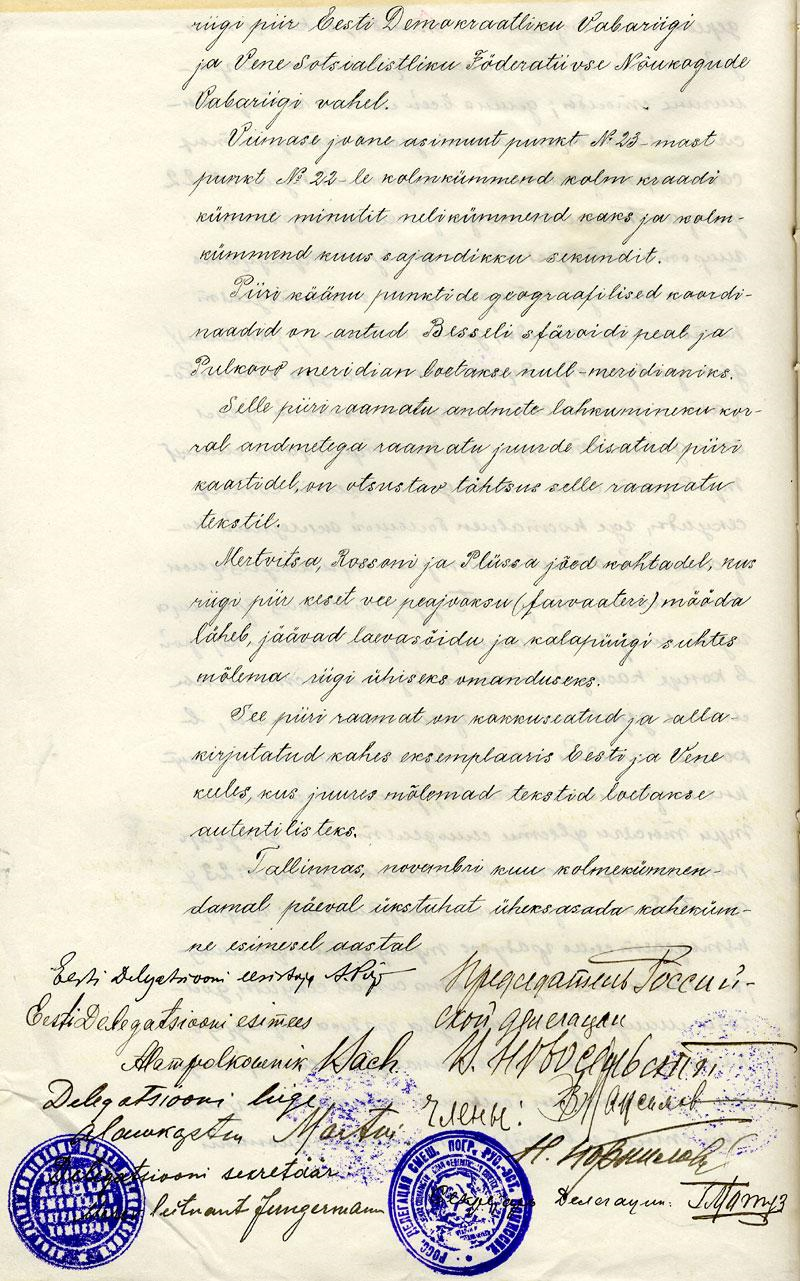 riigi piir Eesti Demokraatliku Vabariigi
ja Vene Sotsialistliku Föderatiivse Nõukogude
Vabariigi vahel.
Viimase joone asimuut punkt № 23-mast
punkt № 22-le kolmkümmend kolm kraadi
kümme minutit nelikümmend kaks ja kolm-
kümmend kuus sajandikku sekundit.
Piiri käänu punktide geograafilised koordi-
naadid on antud Besseli sfäroidi peal ja
Pulkovo meridian loetakse null-meridianiks.
Selle piiriraamatu andmete lahkumineku kor-
ral andmetega raamatu juurde lisatud piiri
kaartidel, on otsustav tähtsus selle raamatu
tekstil.
Mertvitsa, Rossoni ja Plüssa jõed kohtadel, kus
riigi piir keset vee peajooksu (farvaateri) mööda
läheb, jäävad laevasõidu ja kalapüügi suhtes
mõlema riigi ühiseks omanduseks.
See piiri raamat on kokkuseatud ja alla-
kirjutatud kahes eksemplaaris Eesti ja Vene
keeles, kus juures mõlemad tekstid loetakse
autentilisteks.
Tallinnas, novembri kuu kolmekümnen-
damal päeval ükstuhat üheksasada kaheküm-
ne esimesel aastal
Eesti Delegatsiooni
Eesti Delegatsiooni esimees
Alampolkownik
Delegatsiooni liige
Delegatsiooni sekretäär
leitnant Jungermann
Председатель Россий-
ской делегации
Члены:
Секретарь Делегации
РОСС. ДЕЛЕГАЦИЯ СМЕШ. ПОГР. РУС.-ЭСТ.